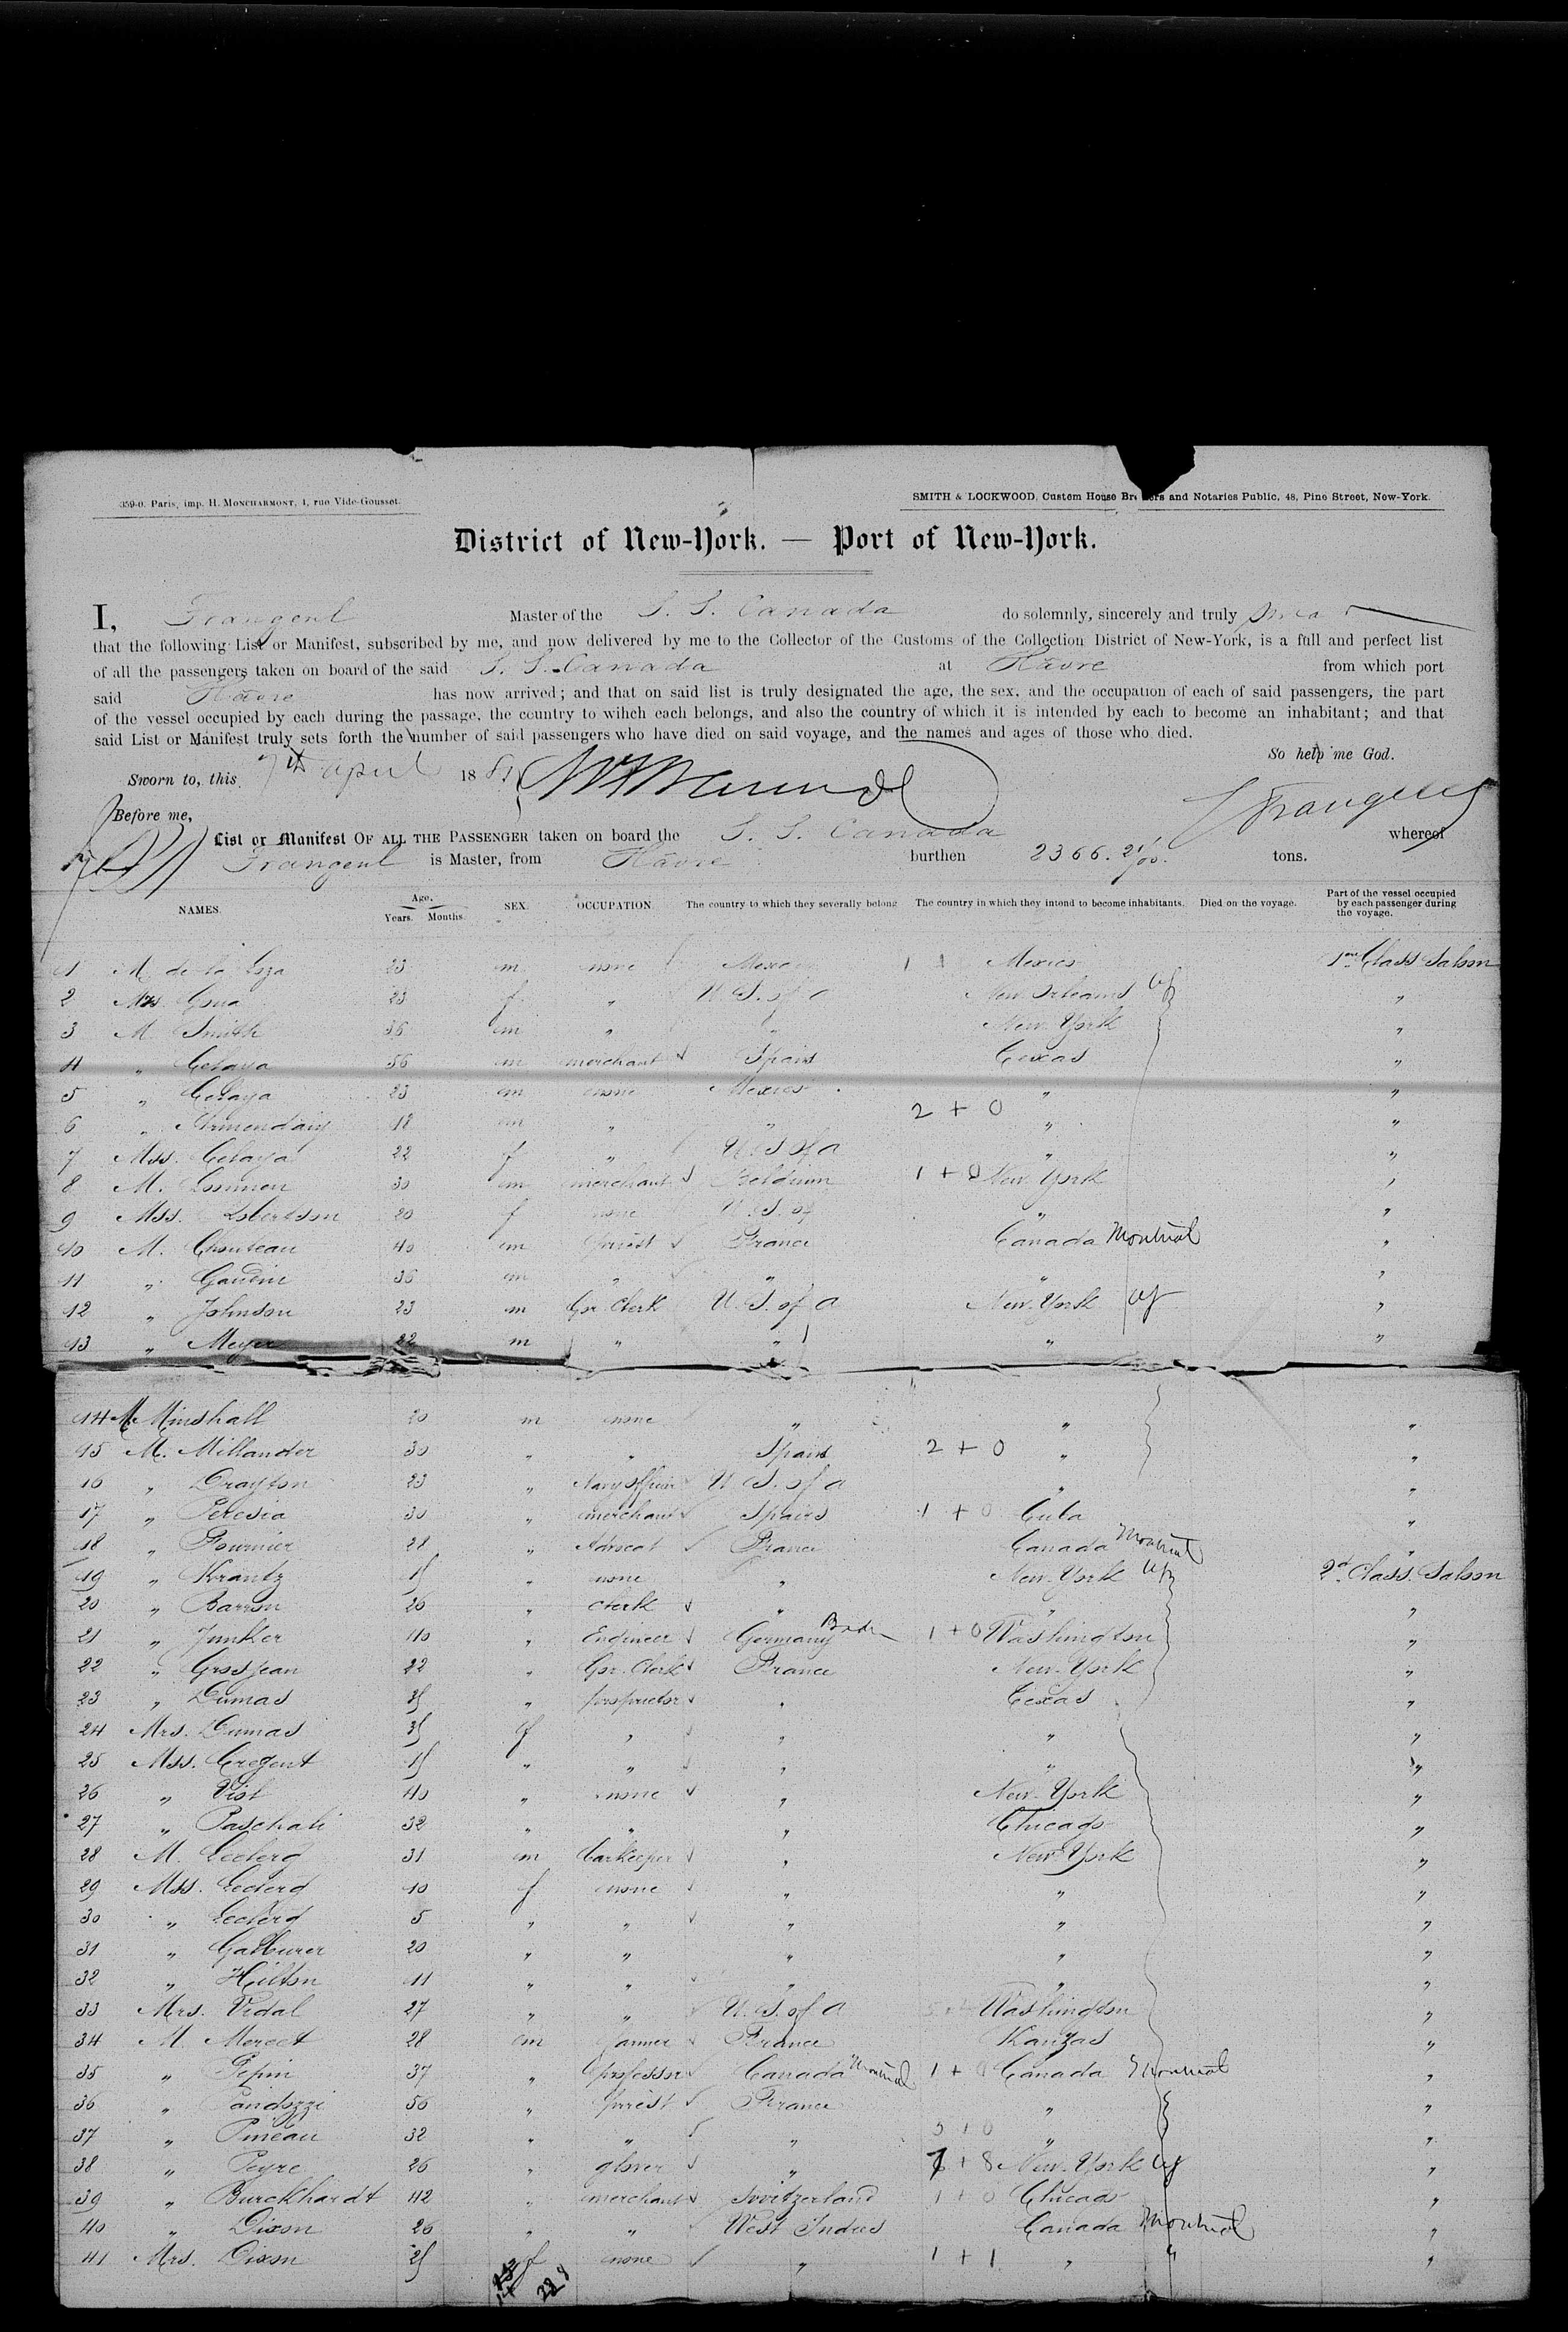 359-0. Paris, imp. H. MONCHARMONT, 1, rue Vide-Gousset.
SMITH & LOCKWOOD, Custom House Brokers and Notaries Public, 48, Pine Street, New-York.
District of New-York. — Port of New-York.
I, Frangeul Master of the S. S. Canada do solemnly, sincerely and truly swear
that the following List or Manifest, subscribed by me, and now delivered by me to the Collector of the Customs of the Collection District of New-York, is a full and perfect list
of all the passengers taken on board of the said S. S. Canada at Havre from which port
said Havre has now arrived; and that on said list is truly designated the age, the sex, and the occupation of each of said passengers, the part
of the vessel occupied by each during the passage, the country to wihch each belongs, and also the country of which it is intended by each to become an inhabitant; and that
said List or Manifest truly sets forth the number of said passengers who have died on said voyage, and the names and ages of those who died.
So help me God.
Sworn to, this 7th april 188
Before me,
Frangeul
List or Manifest OF ALL THE PASSENGER taken on board the S. S. Canada whereof
Frangeul is Master, from Havre burthen 2366. 21/00. tons.
NAMES. Age. Years. Months. SEX. OCCUPATION. The country to which they severally belong The country in which they intend to become inhabitants. Died on the voyage. Part of the vessel occupied by each passenger during the voyage.
1 M. de la 23 m none Mexico 1 Mexico 1st Class Saloon
2 23 f " U. S. of a New Orleans "
3 M. Smith 36 m " " New York "
4 " Celaya 56 m merchant Spain Texas "
5 " Celaya 23 m none Mexico " "
2 + 0
6 " Armendaiz 18 m " " " "
7 Mss. Celaya 22 f " U. S of a " "
8 M. 30 m merchant Beldium 1 + 0 New York "
9 Mss. Robertson 20 f none U. S. of " "
10 M. Chouteau 40 m priest France Canada Montreal "
11 " Gaudin 36 m " " " "
12 " Johnson 23 m Gr. Clerk U. S. of a New York "
13 " Meyer 22 m " " " "
14 M. Minshall 20 m none " " "
15 M. Millander 30 " " Spain 2 + 0 " "
16 " Drayton 23 " Navy officer U. S. of a " "
17 " Peresia 30 " merchant Spain 1 + 0 Cuba "
18 " Fournier 28 " Advocat France Canada Montreal "
19 " Krantz " none " New York 2d Class Saloon
20 " Barron 26 " clerk " " "
21 " Junker 40 " Engineer Germany Baden 1 + 0 Washington "
22 " Grosjean 22 " Gr. Clerk France New York "
23 " Dumas " proprietor " Texas "
24 Mrs. Dumas f " " " "
25 Mss. Cregent " " " " "
26 " Viol 40 " none " New York "
27 " Paschali 32 " " " Chicago "
28 M. Leclerg 31 m barkeeper " New York "
29 Mss. Leclerg 10 f none " " "
30 " Leclerg 5 " " " " "
31 " Gatburer 20 " " " " "
32 " Hilton 11 " " " " "
33 Mrs. Vidal 27 " " U. S. of a Washington "
34 M. Merect 28 m farmer France Kanzas "
35 " Pepin 37 " professor Canada Montreal 1 + 0 Canada Montreal "
36 " Pandozzi 56 " priest France " "
37 " Pineau 32 " " " 3 + 0 " "
38 " Peyre 26 " glover " + 8 New York "
39 " Burckhardt 42 " merchant Switzerland 1 + 0 Chicago "
40 " Dixon 26 " " West Indies Canada Montreal "
41 Mrs. Dixon f none " 1 + 1 " " "